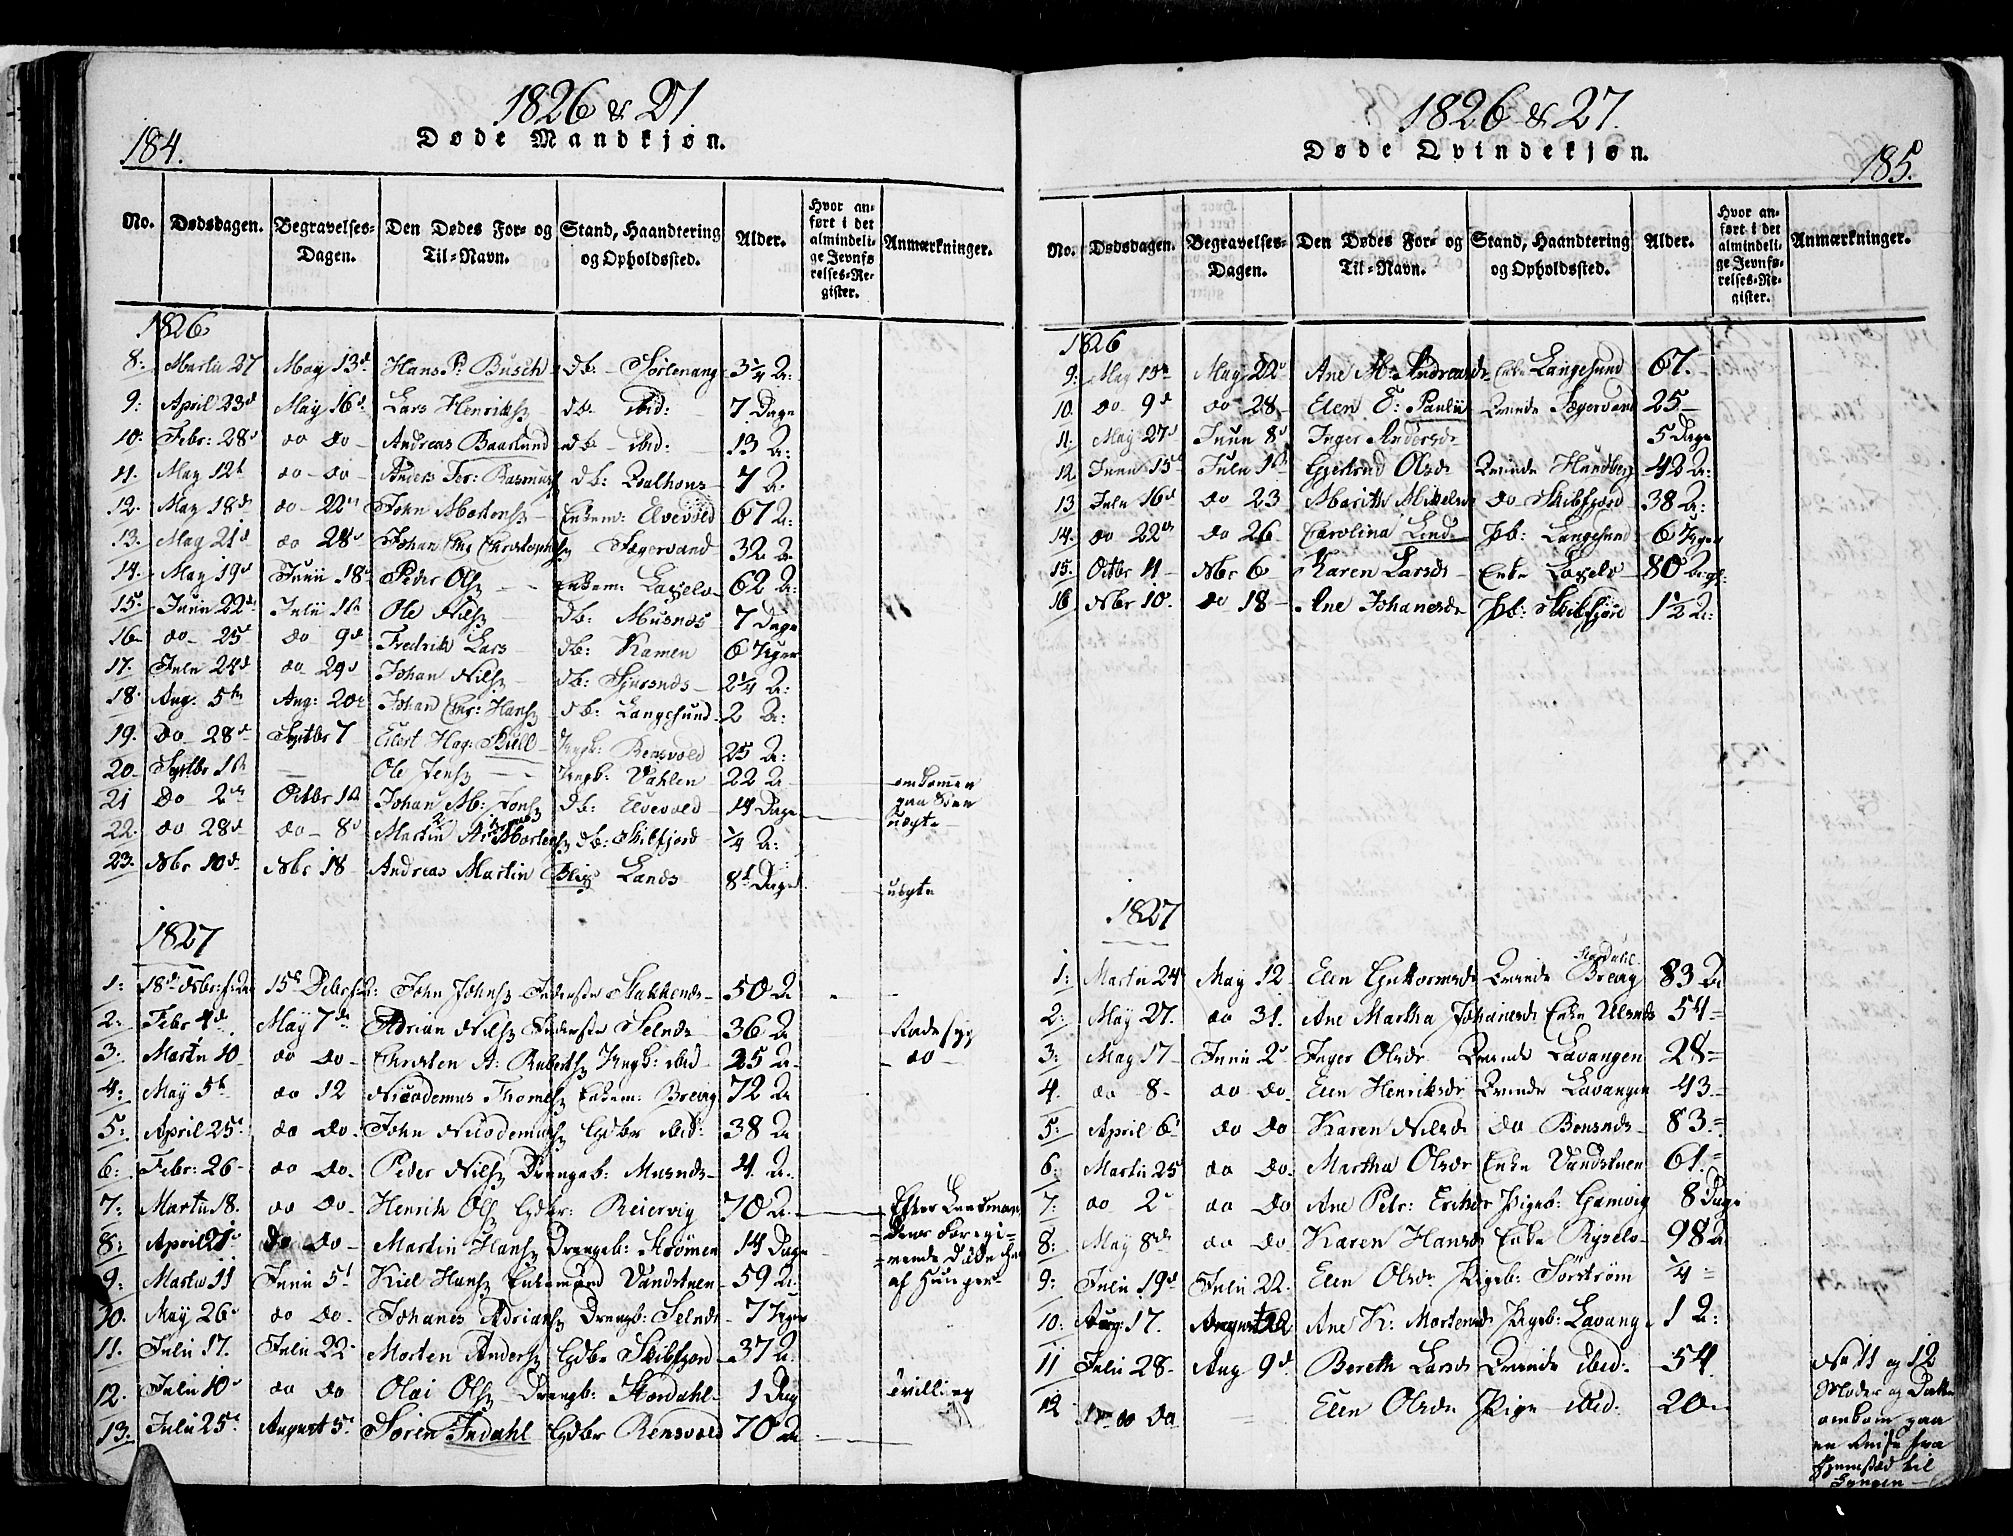 1826 & 27
184.
Døde Mandkjøn.
No. Dødsdagen. Begravelses-Dagen. Den Dødes For- og Til-Navn. Stand, Haandtering og Opholdssted. Alder. Hvor anført i det almindelige Jevnførelses-Register. Anmærkninger.
1826
8: Martii 27 May 13d Hans P: Busch db: Sørlenang 3 1/4 A:
9: April 23d May 16d Lars Henriks db ibid: 7 Dage
10: Febr: 28d do Do Andreas Baarlund db ibid: 13 A:
11. May 12t do Do Anders Rasmus db: 7 A.
12. May 18d do 22n John Mortens Enkem: Elvevold 67 A:
13. May 21d do 28d Johan Chr Christophs Fagervand 32 A.
14. May 19d Junii 18d Peder Ols Enkem: Laxelv 62 A:
15. Junii 22d Julii 1ste Ole Nils db: Musnæs 7 Dage
16 do 25d do 9d Fredrik Lars db: Kamen 6 Uger
17. Julii 24d do 29d Johan Nils db: Sjursnæs 2 1/4 A:
18 Aug. 5te Aug: 20d Johan Chr: Hans db: Langesund 2 A:
19. Do 28d Septbr 7 Eilert Hag: Kiell Ungk: Rensvold 25 A:
20 Septbr 1ste Ole Jens Ungk: Vahlen 22 A omkommen
21 Do 2den Octbr 1ste Johan M: Jons db: Elvevold 14 Dage paa Søen
22. do 28d do 8d Martin Mortens db: Skibfjord 1/4 A: uægte
23. Nbr 10d Nbr 18 Andreas Martin Blix Lands 8t Dage uægte
1827
1: 18d Nbr: 15d Debr: John Johns Stakkenæs 50 A
2: Febr 4d May 7de Adrian Nils Selnæs 36 A Radesyg
3: Martii 10 do Do Christen A: Ruberts Ungk: ibid 25 A do
4: May 5t do 12 Nicodemus Thomes Enkem: Brevig 72 A
5: April 25d do Do John Nicodemus Gdbr ibid: 38 A
6: Febr: 26 do Do. Peder Nils Drengeb: Musnæs 4 A.
7: Martii 18. do Do Henrik Ols Gdbr: Reiervig 70 A. Efter Lensman-
8: April 21d do Do Martin Hans Drengeb: Strømen 14 Dage dens Foregi-
9: Martii 11 Junii 5t Kiel Hans Enkemand Vandstuen 59 A: vende døde han
10. May 26d do Do. Johanes Adrians Drengb: Selnæs 7 Uger af Hunger
11. Julii 17. Julii 22 Morten Anders Gdbr Skibfjord 37 A:
12. Julii 10d do Do Olai Ols Drengb: Stordahl 1 Dag Tvilling
13. Julii 25d August 5t Søren Indahl Gdbr Rensvold 70 A
1826 & 27.
185.
Døde Qvindekjøn.
No. Dødsdagen. Begravelses-Dagen. Den Dødes For- og Til-Navn. Stand, Haandtering og Opholdssted. Alder. Hvor anført i det almindelige Jevnførelses-Register. Anmærkninger.
1826
9: May 15de May 22d Ane M: Andreasdr Enke Langesund 67.
10. do 9d do 28 Elen E: Paulii Qvinde Fagervand 25
11. May 27d Junii 8d Inger Andersdr 5 Dage
12 Junii 15d Julii 1ste Gjertrud Olsdr Qvinde Hundberg 42 A:
13 Julii 16d do 23 Marith Mikelsdr do Skibfjord 38 A:
14. do 22de do 26 Carolina Lind Pb: Langesund 6 Uger
15. Octbr 4 Nbr 6 Karen Larsdr Enke Laxelv 80 A:
16 Nbr 10. do 18 Ane Johanesdr Pb: Skibfjord 1 1/2 A:
1827
1: Martii 24 May 12 Elen Guttormsdr Qvinde Stordahl Brevig 83 A
2: May 27. do 31. Ane Martha Johanesdr Enke Ulsnæs 54
3: May 17 Junii 2d Inger Olsdr Qvinde Lavangen 28
4. do 8 do Do Elen Henriksdr Qvinde Lavangen 43
5: April 6t do Do Karen Nilsdr do Bensnæs 83
6. Martii 25 do Do. Martha Olsdr Enke Vandstuen 61.
7: do 2d do Do Ane Petr: Eriksdr Pigeb: Gamvig 8 Dage
8: May 8de do Do Karen Hansdr Enke Ryselv 98 A
9: Julii 19d Julii 22. Elen Olsdr Pigeb: Sørstrøm 1/4
10: Aug: 17. August 12 Ane K: Mortensdr Pigeb: Lavang 1 A:
11 Julii 28 Aug 9d Bereth Larsdr Qvinde ibid: 54 No 11 og 12
12 do Do Elen Olsdr Pige ibid: 20 Moder og Datter
omkom paa
en Reise fra
Hjemsted til
Lyngen